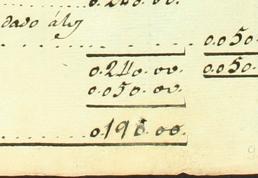 0.240.00.
dado álg
0.050.
0.240.00. 0.050.
0.050.00.
0.190.00.